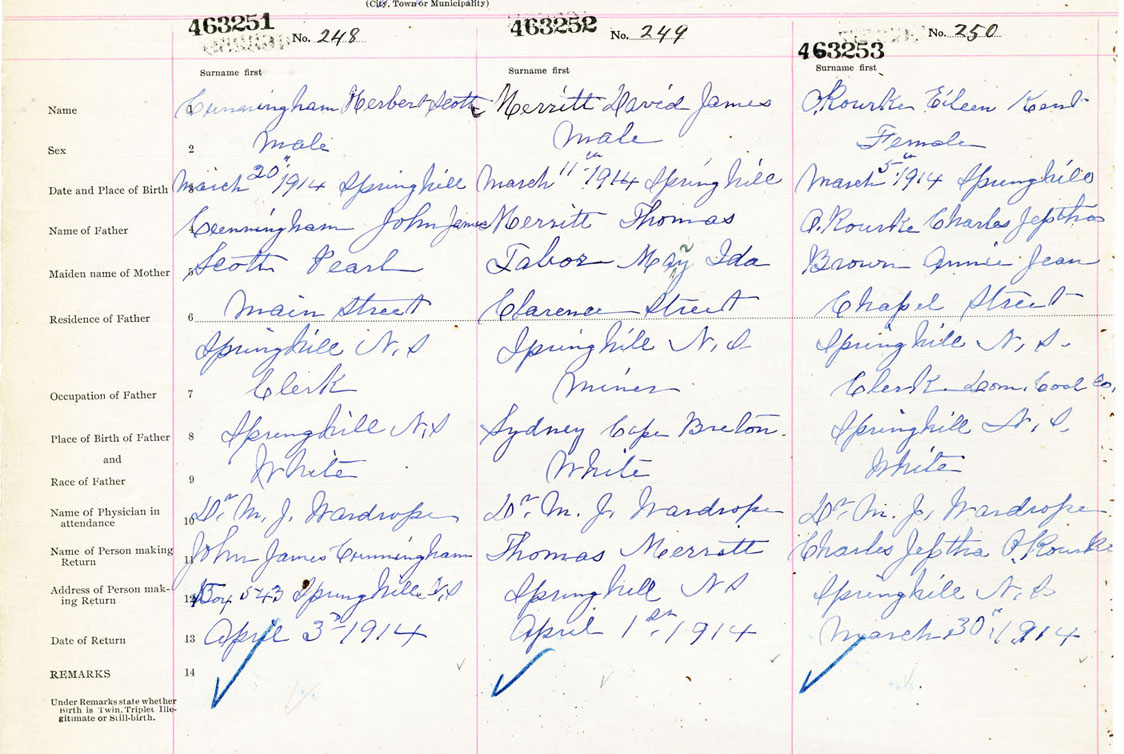 (City, Town or Municipality)
463251 No. 248 463252 No. 249 463253 No. 250
Surname first Surname first Surname first
Name 1 Cunningham Herbert Scott Merritt David James O'Rourke Eileen Kent
Sex 2 Male Male Female
Date and Place of Birth 3 March 20th 1914 Springhill March 11th 1914 Springhill March 5th 1914 Springhill
Name of Father 4 Cunningham John James Merritt Thomas O'Rourke Charles Jeptha
Maiden name of Mother 5 Scott Pearl Tabor May Ida Brown Annie Jean
Residence of Father 6 Main Street Clarence Street Chapel Street
Springhill N.S Springhill N.S Springhill N.S.
Occupation of Father 7 Clerk Miner Clerk Dom. Coal Co.
Place of Birth of Father 8 Springhill N.S Sydney Cape Breton. Springhill N.S.
and
Race of Father 9 White White White
Name of Physician in attendance 10 Dr. M. J. Wardrope Dr. M. J. Wardrope Dr. M. J. Wardrope
Name of Person making Return 11 John James Cunningham Thomas Merritt Charles Jeptha O'Rourke
Address of Person making Return 12 Box 543 Springhill N.S Springhill N S Springhill N.S
Date of Return 13 April 3rd 1914 April 1st 1914 March 30th 1914
REMARKS 14
Under Remarks state whether
Birth is Twin, Triplet Ille-
gitimate or Still-birth.